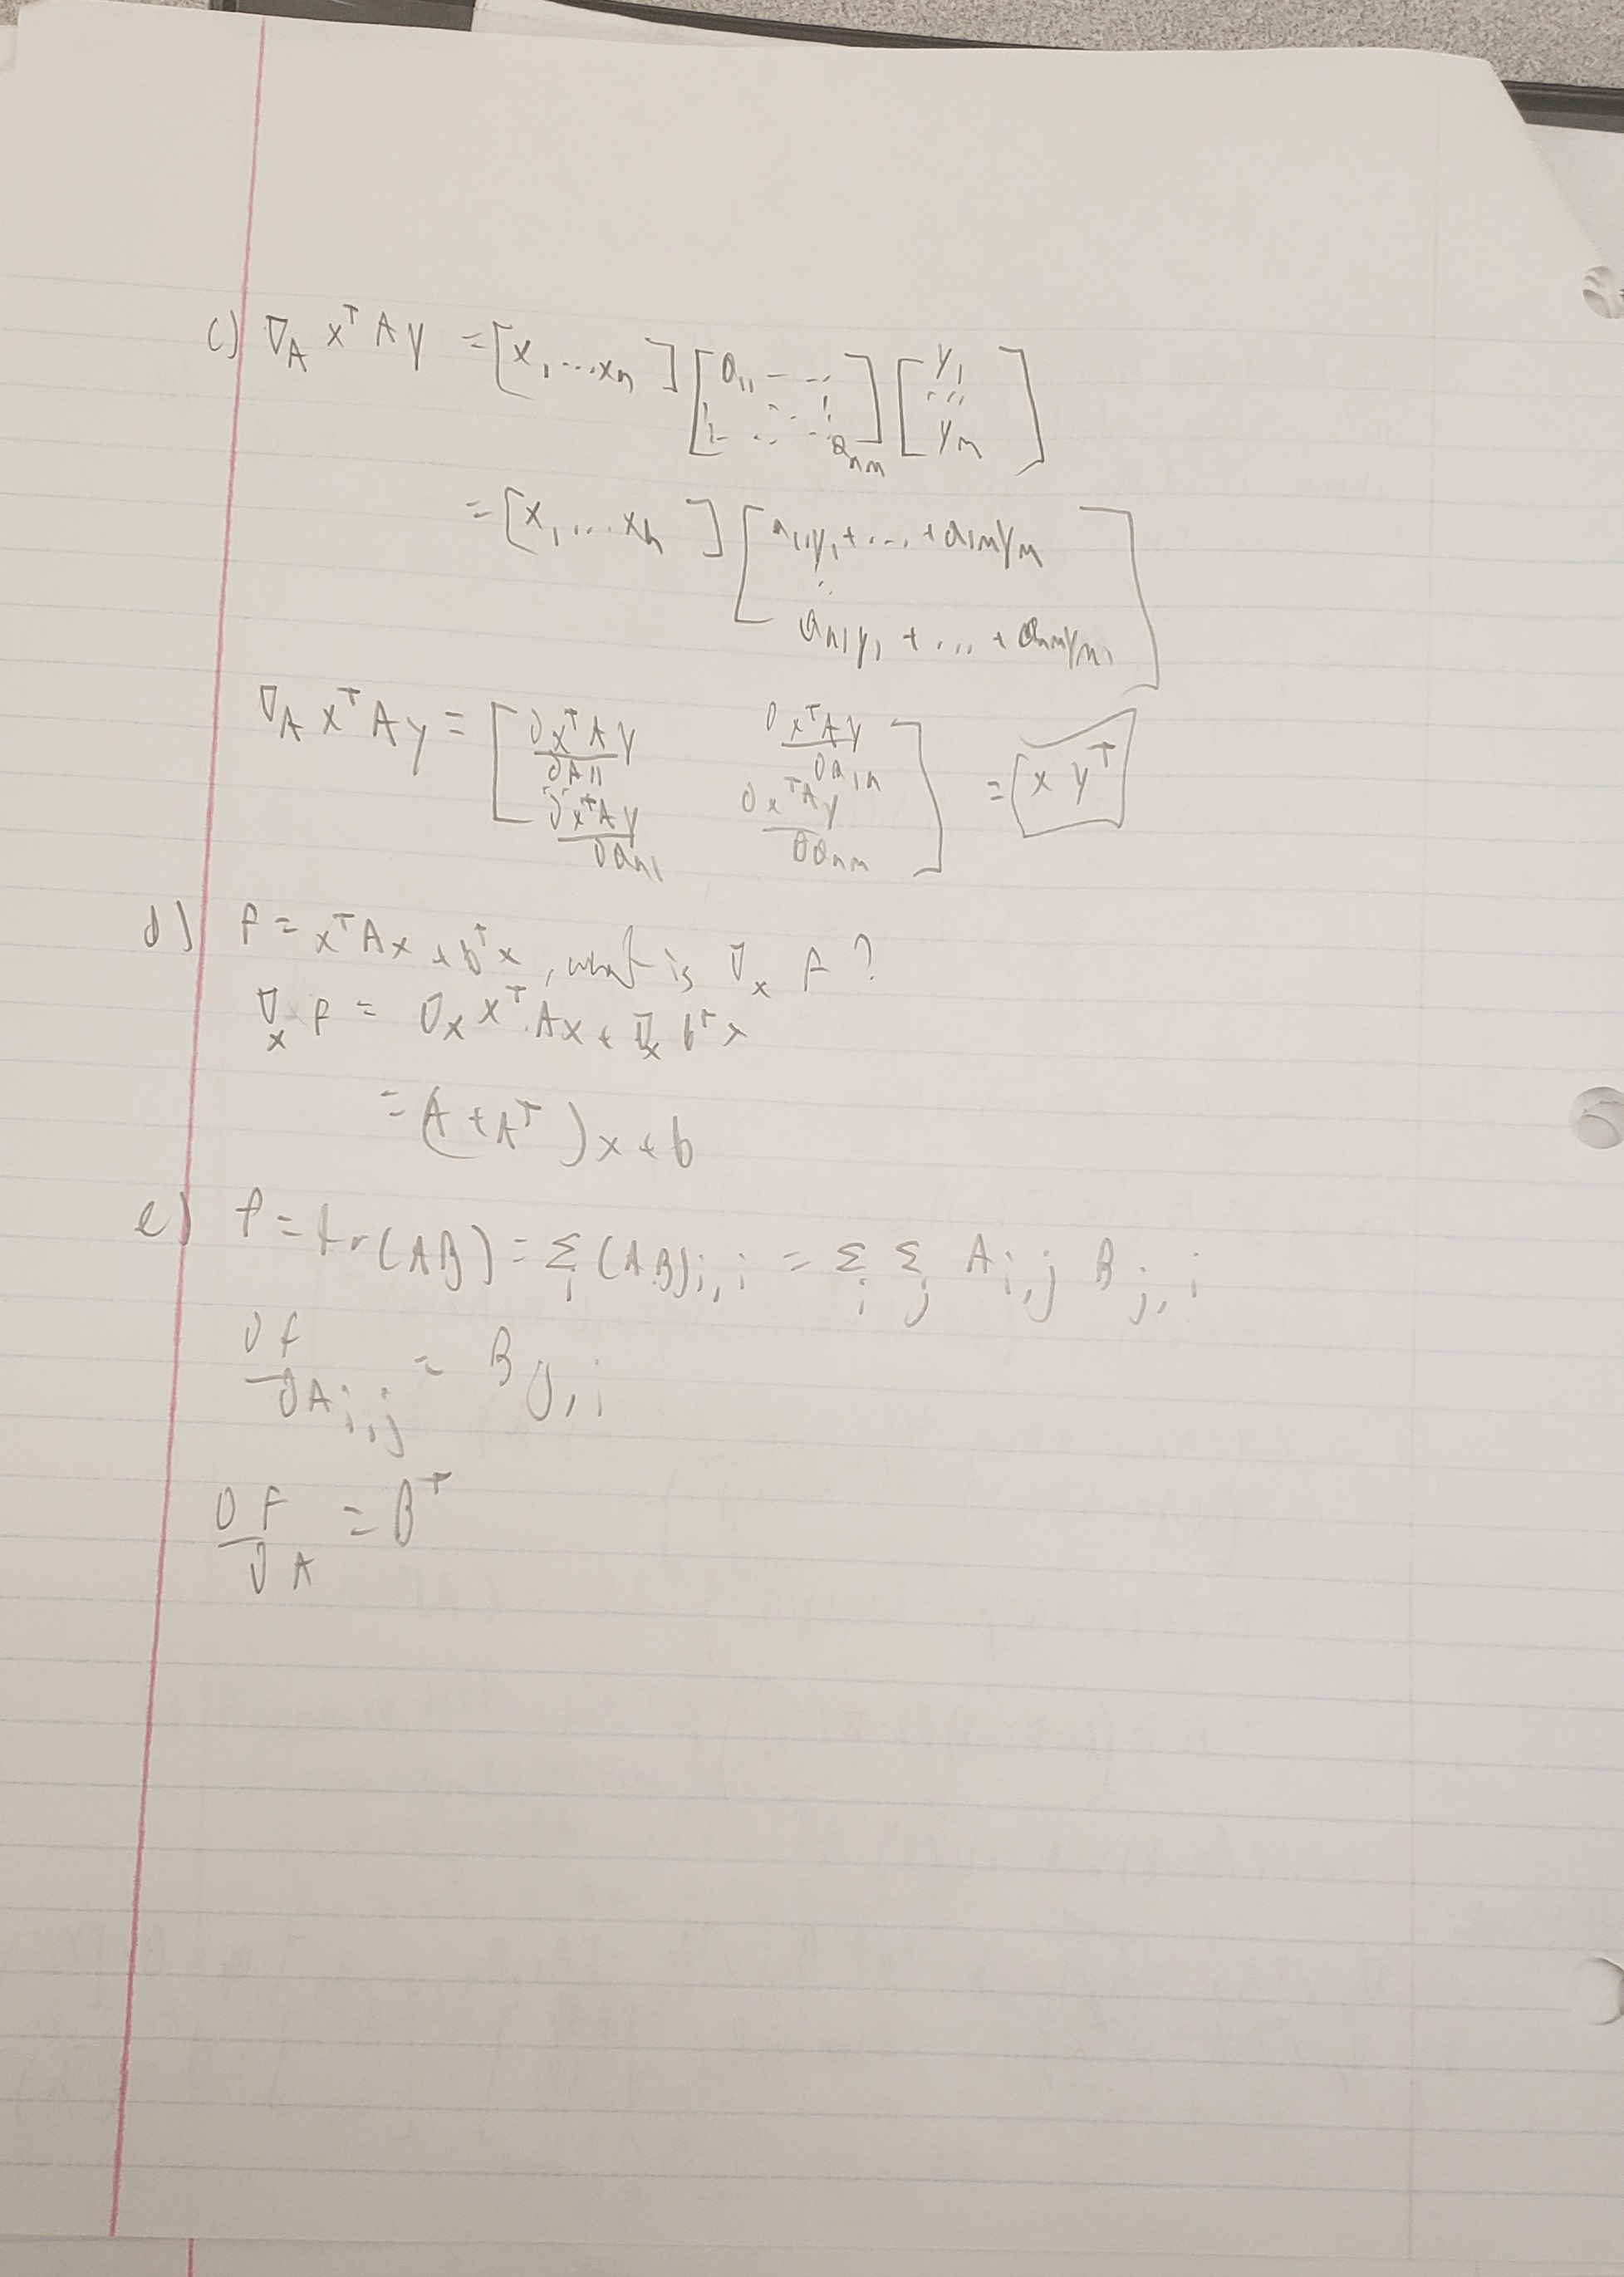 c) ∇_A x^T A y = [x_1 ... x_n] [a_11 - ... ⋮ ... a_nm] [y_1 ... y_m]
= [x_1 ... x_n] [a_11 y_1 + ... + a_1m y_m ⋮ a_n1 y_1 + ... + a_nm y_m]
∇_A x^T A y = [∂x^T A y / ∂A_11   ∂x^T A y / ∂a_1n ⋮ ∂x^T A y / ∂a_n1   ∂x^T A y / ∂a_nm] = x y^T
d) f = x^T A x + b^T x, what is ∇_x f?
∇_x f = ∇_x x^T A x + ∇_x b^T x
= (A + A^T) x + b
e) f = tr(AB) = Σ_i (AB)_i,i = Σ_i Σ_j A_i,j B_j,i
∂f / ∂A_i,j = B_j,i
∂f / ∂A = B^T